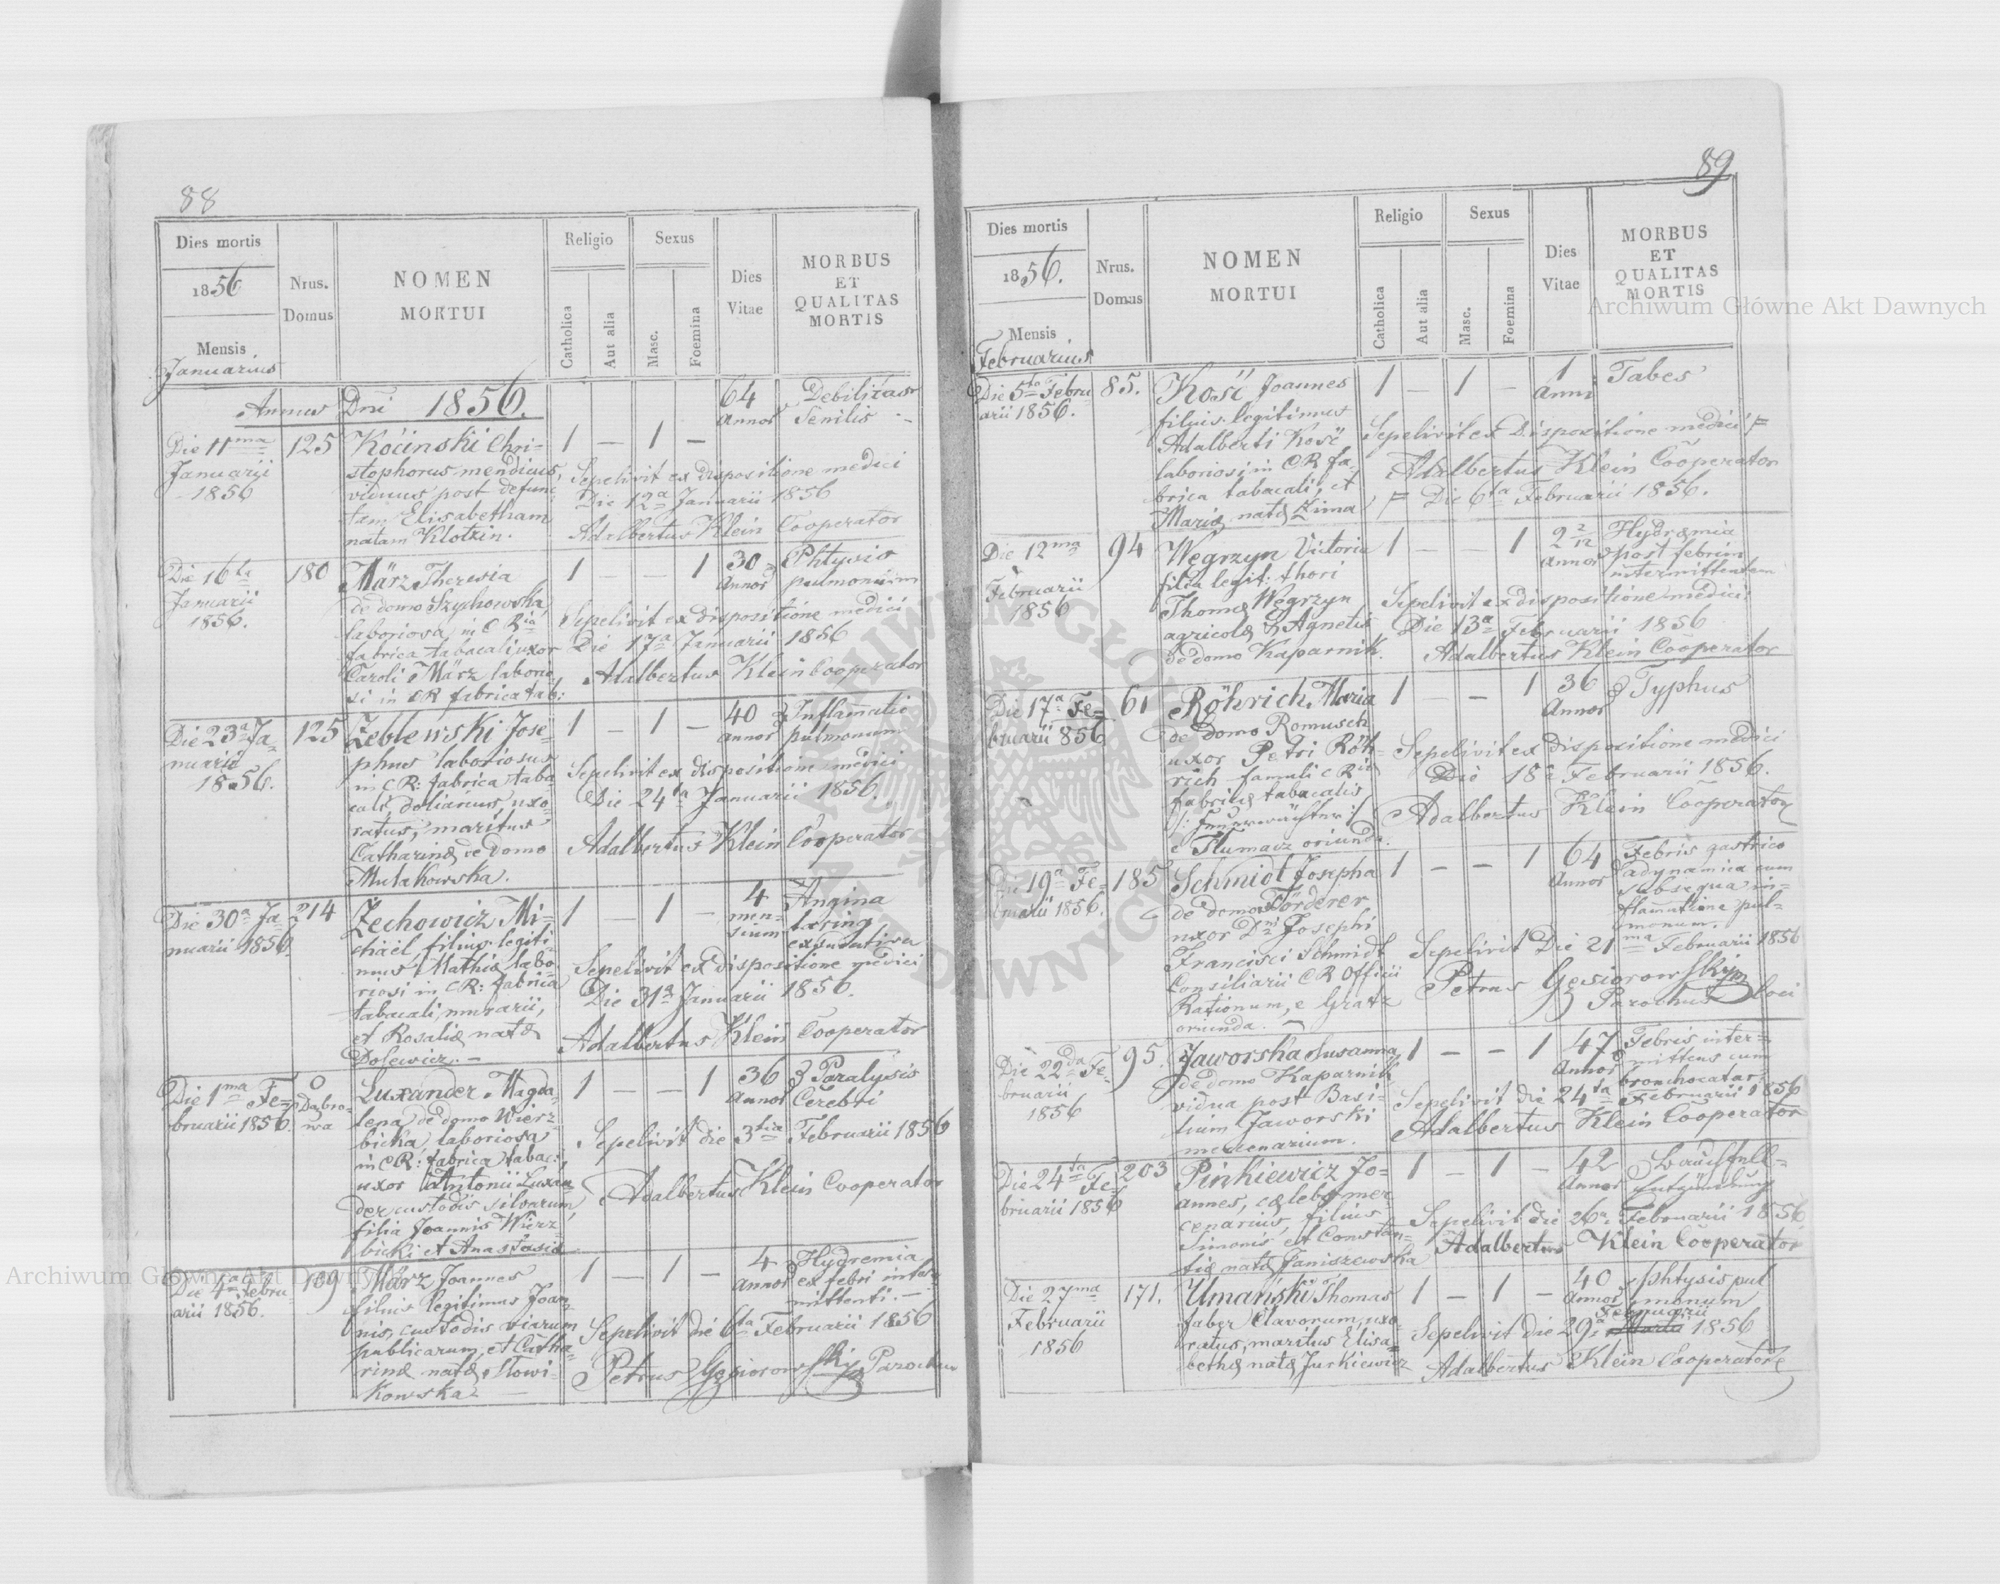 88
Dies mortis
1856
Mensis
Januarius
Nrus.
Domus
NOMEN
MORTUI
Religio
Catholica
Aut alia
Sexus
Masc.
Foemina
Dies
Vitae
MORBUS
ET
QUALITAS
MORTIS
Annus Dni 1856.
Die 11ma
Januarii
1856
125
Kócinski Chri-
stophorus mendicus,
viduus post defunc
tam Elisabetham
natam Klotzin.
1 — 1 —
64
Annor
Debilitas
Senilis
Sepelivit ex dispositione medici
Die 12a Januarii 1856
Adalbertus Klein Cooperator
Die 16ta
Januarii
1856.
180
März Theresia
de domo Szychowska
laboriosa in C Ria
fabrica tabacali, uxor
Caroli März laborio
si in CR fabrica tab:
1 — — 1
30
Annor
Phtysis
pulmonum
Sepelivit ex dispositione medici
Die 17a Januarii 1856
Adalbertus Klein Cooperator
Die 23a Ja-
nuarii
1856.
125
Zeblewski Jose-
phus laboriosus
in CR: fabrica taba
cali doliarius, uxo
ratus, maritus
Catharinæ de domo
Mulakowska.
1 — 1 —
40
Annor
Inflamatio
pulmonum
Sepelivit ex dispositione medici
Die 24ta Januarii 1856.
Adalbertus Klein Cooperator
Die 30a Ja-
nuarii 1856.
214
Zechowicz Mi-
chael, filius legiti-
mus Mathiæ labo-
riosi in CR: fabrica
tabacali, murarii,
et Rosaliæ natæ
Dolewicz. —
1 — 1 —
4
men-
sium
Angina
laring
exsudativa
Sepelivit ex dispositione medici
Die 31a Januarii 1856.
Adalbertus Klein Cooperator
Die 1ma Fe-
bruarii 1856.
0
Dąbro-
wa
Luxander Magda-
lena de domo Wierz-
bicka laboriosa
in CR: fabrica tabac:,
uxor Antonii Luxan
der custodis silvarum,
filia Joannis Wierz
bicki et Anastasiæ
1 — — 1
36
Annor
Paralysis
Cerebri
Sepelivit die 3tia Februarii 1856
Adalbertus Klein Cooperator
Die 4ta Febru-
arii 1856.
109
März Joannes
filius legitimus Joan
nis, custodis viarum
publicarum, et Catha-
rinæ natæ Słowi-
kowska
1 — 1 —
4
Annor
Hydremia
ex febri inter-
mittenti. —
Sepelivit die 6ta Februarii 1856
Petrus Gęsiorowski Parochus
89
Dies mortis
1856.
Mensis
Februarius
Nrus.
Domus
NOMEN
MORTUI
Religio
Catholica
Aut alia
Sexus
Masc.
Foemina
Dies
Vitae
MORBUS
ET
QUALITAS
MORTIS
Die 5ta Febru
arii 1856.
85.
Kość Joannes
filius legitimus
Adalberti Kość
laboriosi in CR fa-
brica tabacali, et
Mariæ natæ Zima
1 — 1 —
1
Anni
Tabes
Sepelivit ex Dispositione medici
Adalbertus Klein Cooperator
Die 6ta Februarii 1856.
Die 12ma
Februarii
1856
94
Węgrzyn Victoria
filia legit: thori
Thomæ Węgrzyn
agricolæ & Agnetis
de domo Kaparnik.
1 — — 1
2 2/12
Annor
Hydræmia
post febrim
intermittentem
Sepelivit ex dispositione medici
Die 13a Februarii 1856
Adalbertus Klein Cooperator
Die 17a Fe-
bruarii 856
61
Röhrich Maria
de domo Romusch
uxor Petri Röh-
rich famuli C Riæ
fabricæ tabacalis
/: Feuerwächter :/
e Tłumacz oriunda.
1 — — 1
36
Annor
Typhus
Sepelivit ex dispositione medici
Die 18a Februarii 1856.
Adalbertus Klein Cooperator
Die 19a Fe-
bruarii 1856.
185
Schmidt Josepha
de domo Förderer
uxor Dni Josephi
Francisci Schmidt
Consiliarii CR Officii
Rationum, e Gratz
oriunda.
1 — — 1
64
Annor
Febris gastrico
adynamica cum
subsequa in-
flamatione pul-
monum.
Sepelivit Die 21ma Februarii 1856
Petrus Gęsiorowski
Parochus loci
Die 22da Fe-
bruarii
1856
95.
Jaworska Susanna
de domo Kaparnik
vidua post Basi-
lium Jaworski
mercenarium.
1 — — 1
47
Annor
Febris inter-
mittens cum
bronchocatar:
Sepelivit die 24ta Februarii 1856
Adalbertus Klein Cooperator
Die 24ta Fe-
bruarii 1856
203
Pinkiewicz Jo-
annes, cælebs mer
cenarius, filius
Simonis et Constan-
tiæ natæ Janiszewska
1 — 1 —
42
Annor
Bauchfell-
Entzündung
Sepelivit die 26a Februarii 1856
Adalbertus Klein Cooperator
Die 27ma
Februarii
1856
171.
Umański Thomas
faber clavorum, uxo
ratus, maritus Elisa-
bethæ natæ Jurkiewicz
1 — 1 —
40
Annor
Phtysis pul
monum
Februarii
Sepelivit die 29a Martii 1856
Adalbertus Klein Cooperator
Archiwum Główne Akt Dawnych
Archiwum Główne Akt Dawnych
ARCHIWUM GŁÓWNE AKT DAWNYCH